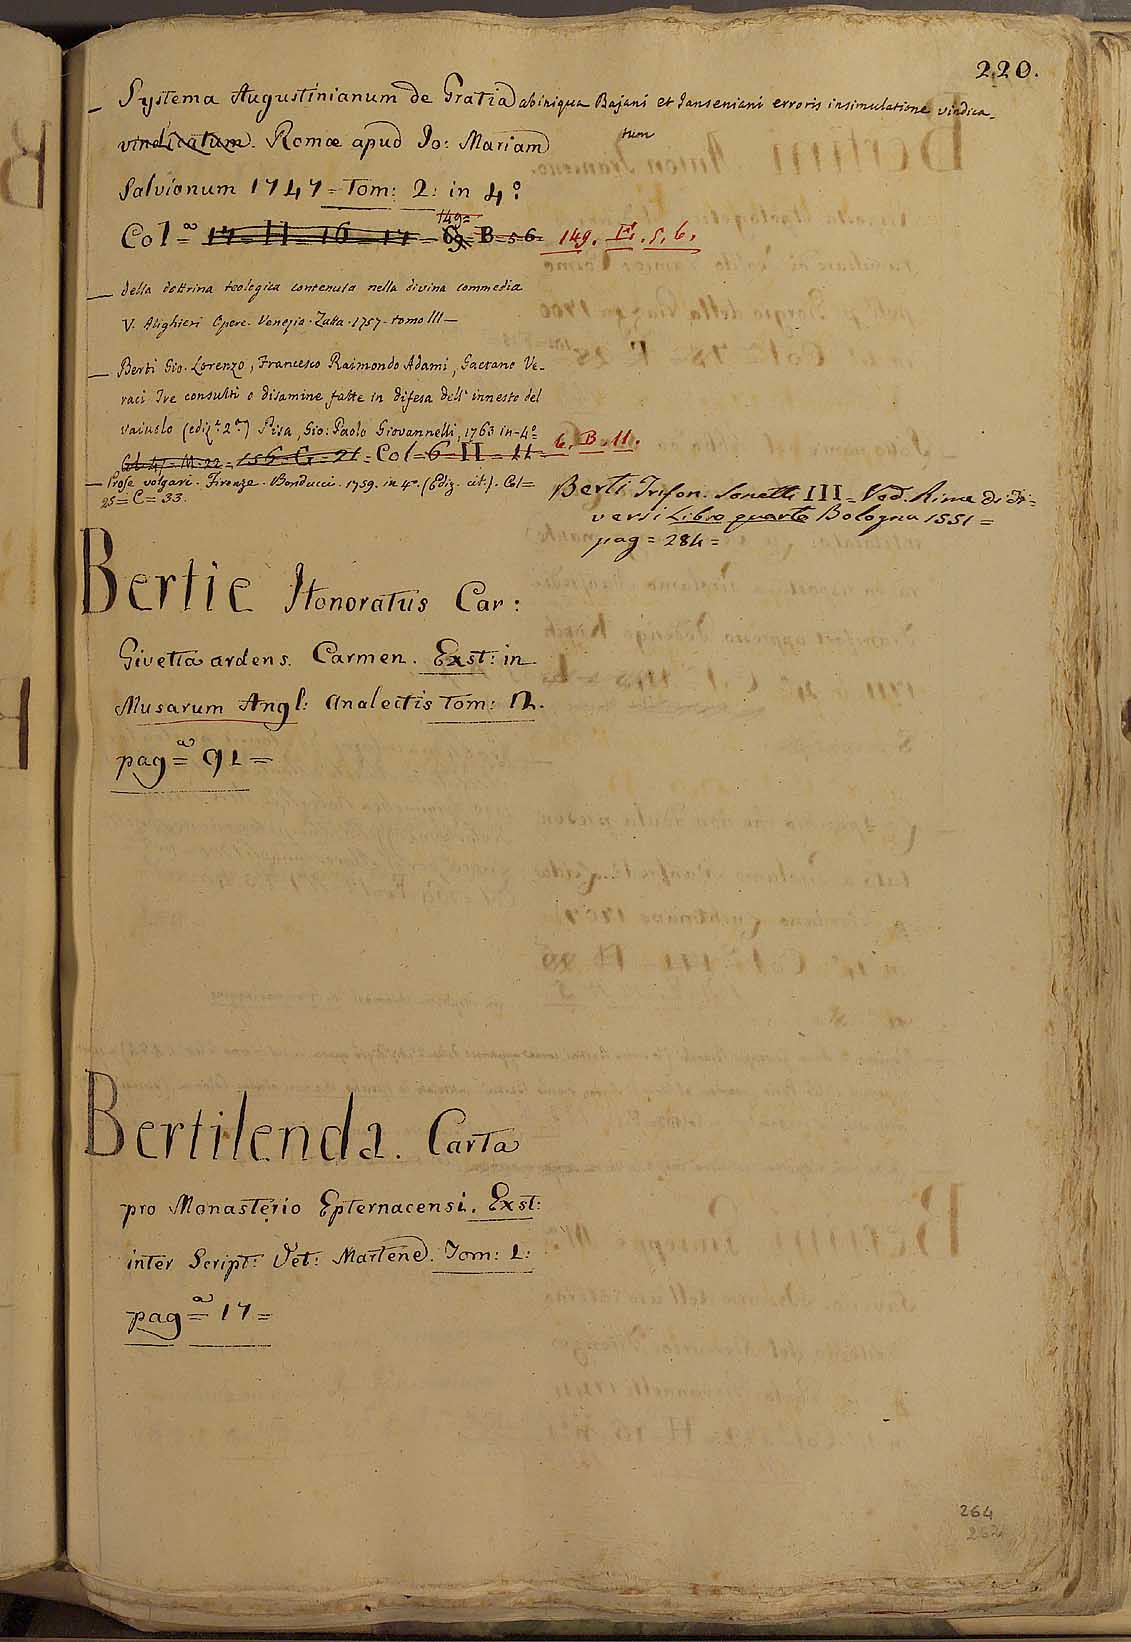 220.
— Systema Augustinianum de Gratia ab iniqua Bajani et Janseniani erroris insimulatione vindica-
tum
vindicatum. Romæ apud Jo: Mariam
Salvionum 1747 = Tom: 2: in 4º
149=
Colª= 17 - 11 - 16 - 17 - 69 B = 5 6 149. E. 5. 6.
— della dottrina teologica contenuta nella divina commedia
V. Alighieri Opere. Venezia. Zatta. 1757. tomo III —
— Berti Gio. Lorenzo, Francesco Raimondo Adami, Gaetano Ve-
raci Tre consulti o disamine fatte in difesa dell'innesto del
vaiuolo (edizº 2ª) Pisa, Gio: Paolo Giovannelli, 1763 in-4º=
M. 22 = 156. G. = 21 = Col = 6 = II = 11 = 6. B. 11.
— Prose volgari. Firenze. Bonducci. 1759. in 4º. (Ediz. cit.). Col =
25 = C = 33.
Berti Trifon. Sonetti III = Ved. Rime di Di=
versi Libro quarto Bologna 1551 =
pag = 284 =
Bertie Honoratus Car:
Givetta ardens. Carmen. Exst: in
Musarum Angl: Analectis Tom: 2.
pagª= 91 =
Bertilenda. Carta
pro Monasterio Epternacensi. Exst:
inter Script: Vet: Martene. Tom: 1:
pagª= 17 =
264
262